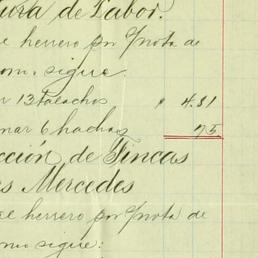 tura de Labor.
el herrero por nota de
como sigue
13 talachos $ 4.31
nar 6 hachas 75
cción de Fincas
es Mercedes
el herrero por nota de
como sigue: